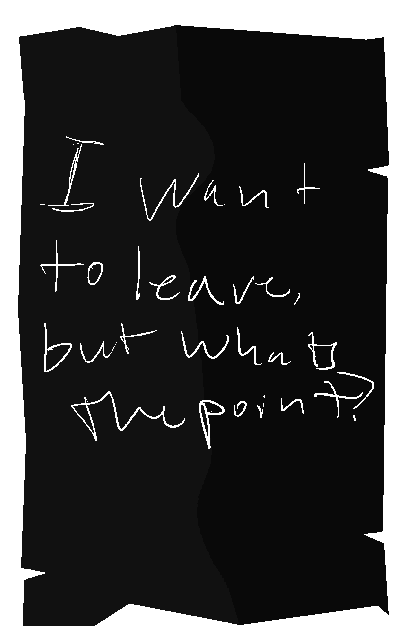 I want
to leave,
but whats
the point?